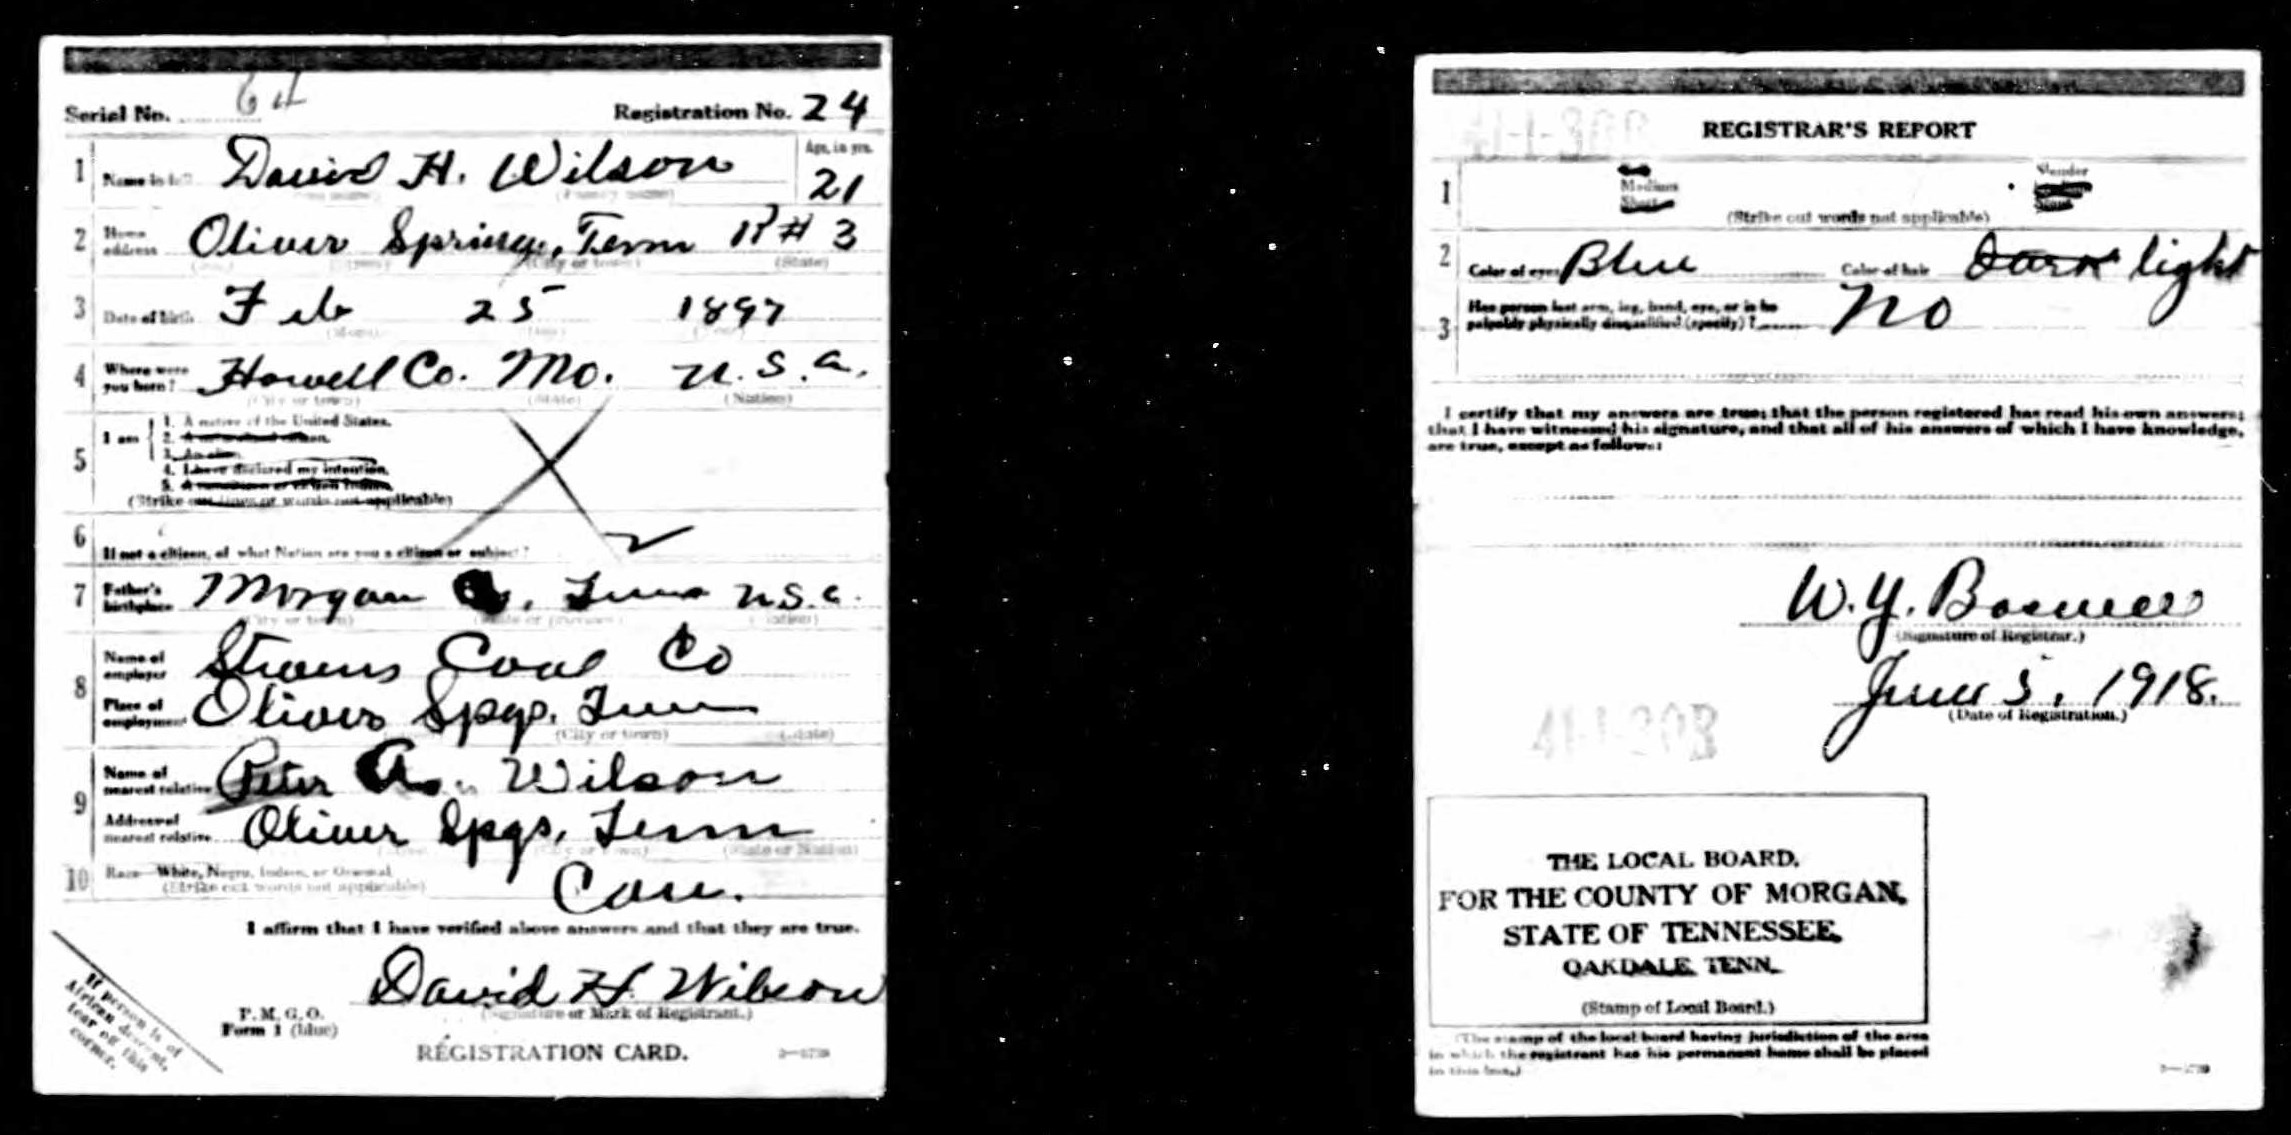 Serial No. 64 Registration No. 24
1 Name in full David H. Wilson Age, in yrs. 21
(Family name)
2 Home address Oliver Springs, Tenn R # 3
(City or town) (State)
3 Date of birth Feb 25 1897
4 Where were you born? Howell Co. Mo. U.S.A.
(City or town) (State) (Nation)
5 I am
1. A native of the United States.
2. A naturalized citizen.
3. An alien.
4. I have declared my intention.
5. A noncitizen or citizen Indian.
(Strike out lines or words not applicable)
6 If not a citizen, of what Nation are you a citizen or subject?
7 Father's birthplace Morgan Co., Tenn U.S.A.
(City or town) (State or province) (Nation)
8 Name of employer Coal Co
Place of employment Oliver Spgs. Tenn
(City or town) (State)
9 Name of nearest relative Peter A. Wilson
Address of nearest relative Oliver Spgs. Tenn
(City or town) (State or Nation)
10 Race—White, Negro, Indian, or Oriental
(Strike out words not applicable) Cau.
I affirm that I have verified above answers and that they are true.
David H Wilson
(Signature or Mark of Registrant.)
P. M. G. O.
Form 1 (blue)
REGISTRATION CARD.
If person is of
African descent,
tear off this
corner.
REGISTRAR'S REPORT
1 Medium Slender
Short Stout
(Strike out words not applicable)
2 Color of eyes Blue Color of hair Dark light
3 Has person lost arm, leg, hand, eye, or is he
palpably physically disqualified (specify)? No
I certify that my answers are true; that the person registered has read his own answers;
that I have witnessed his signature, and that all of his answers of which I have knowledge,
are true, except as follows:
W. Y.
(Signature of Registrar.)
June 5, 1918.
(Date of Registration.)
41-1-30B
THE LOCAL BOARD,
FOR THE COUNTY OF MORGAN,
STATE OF TENNESSEE,
OAKDALE, TENN.
(Stamp of Local Board.)
(The stamp of the local board having jurisdiction of the area
in which the registrant has his permanent home shall be placed
in this box.)